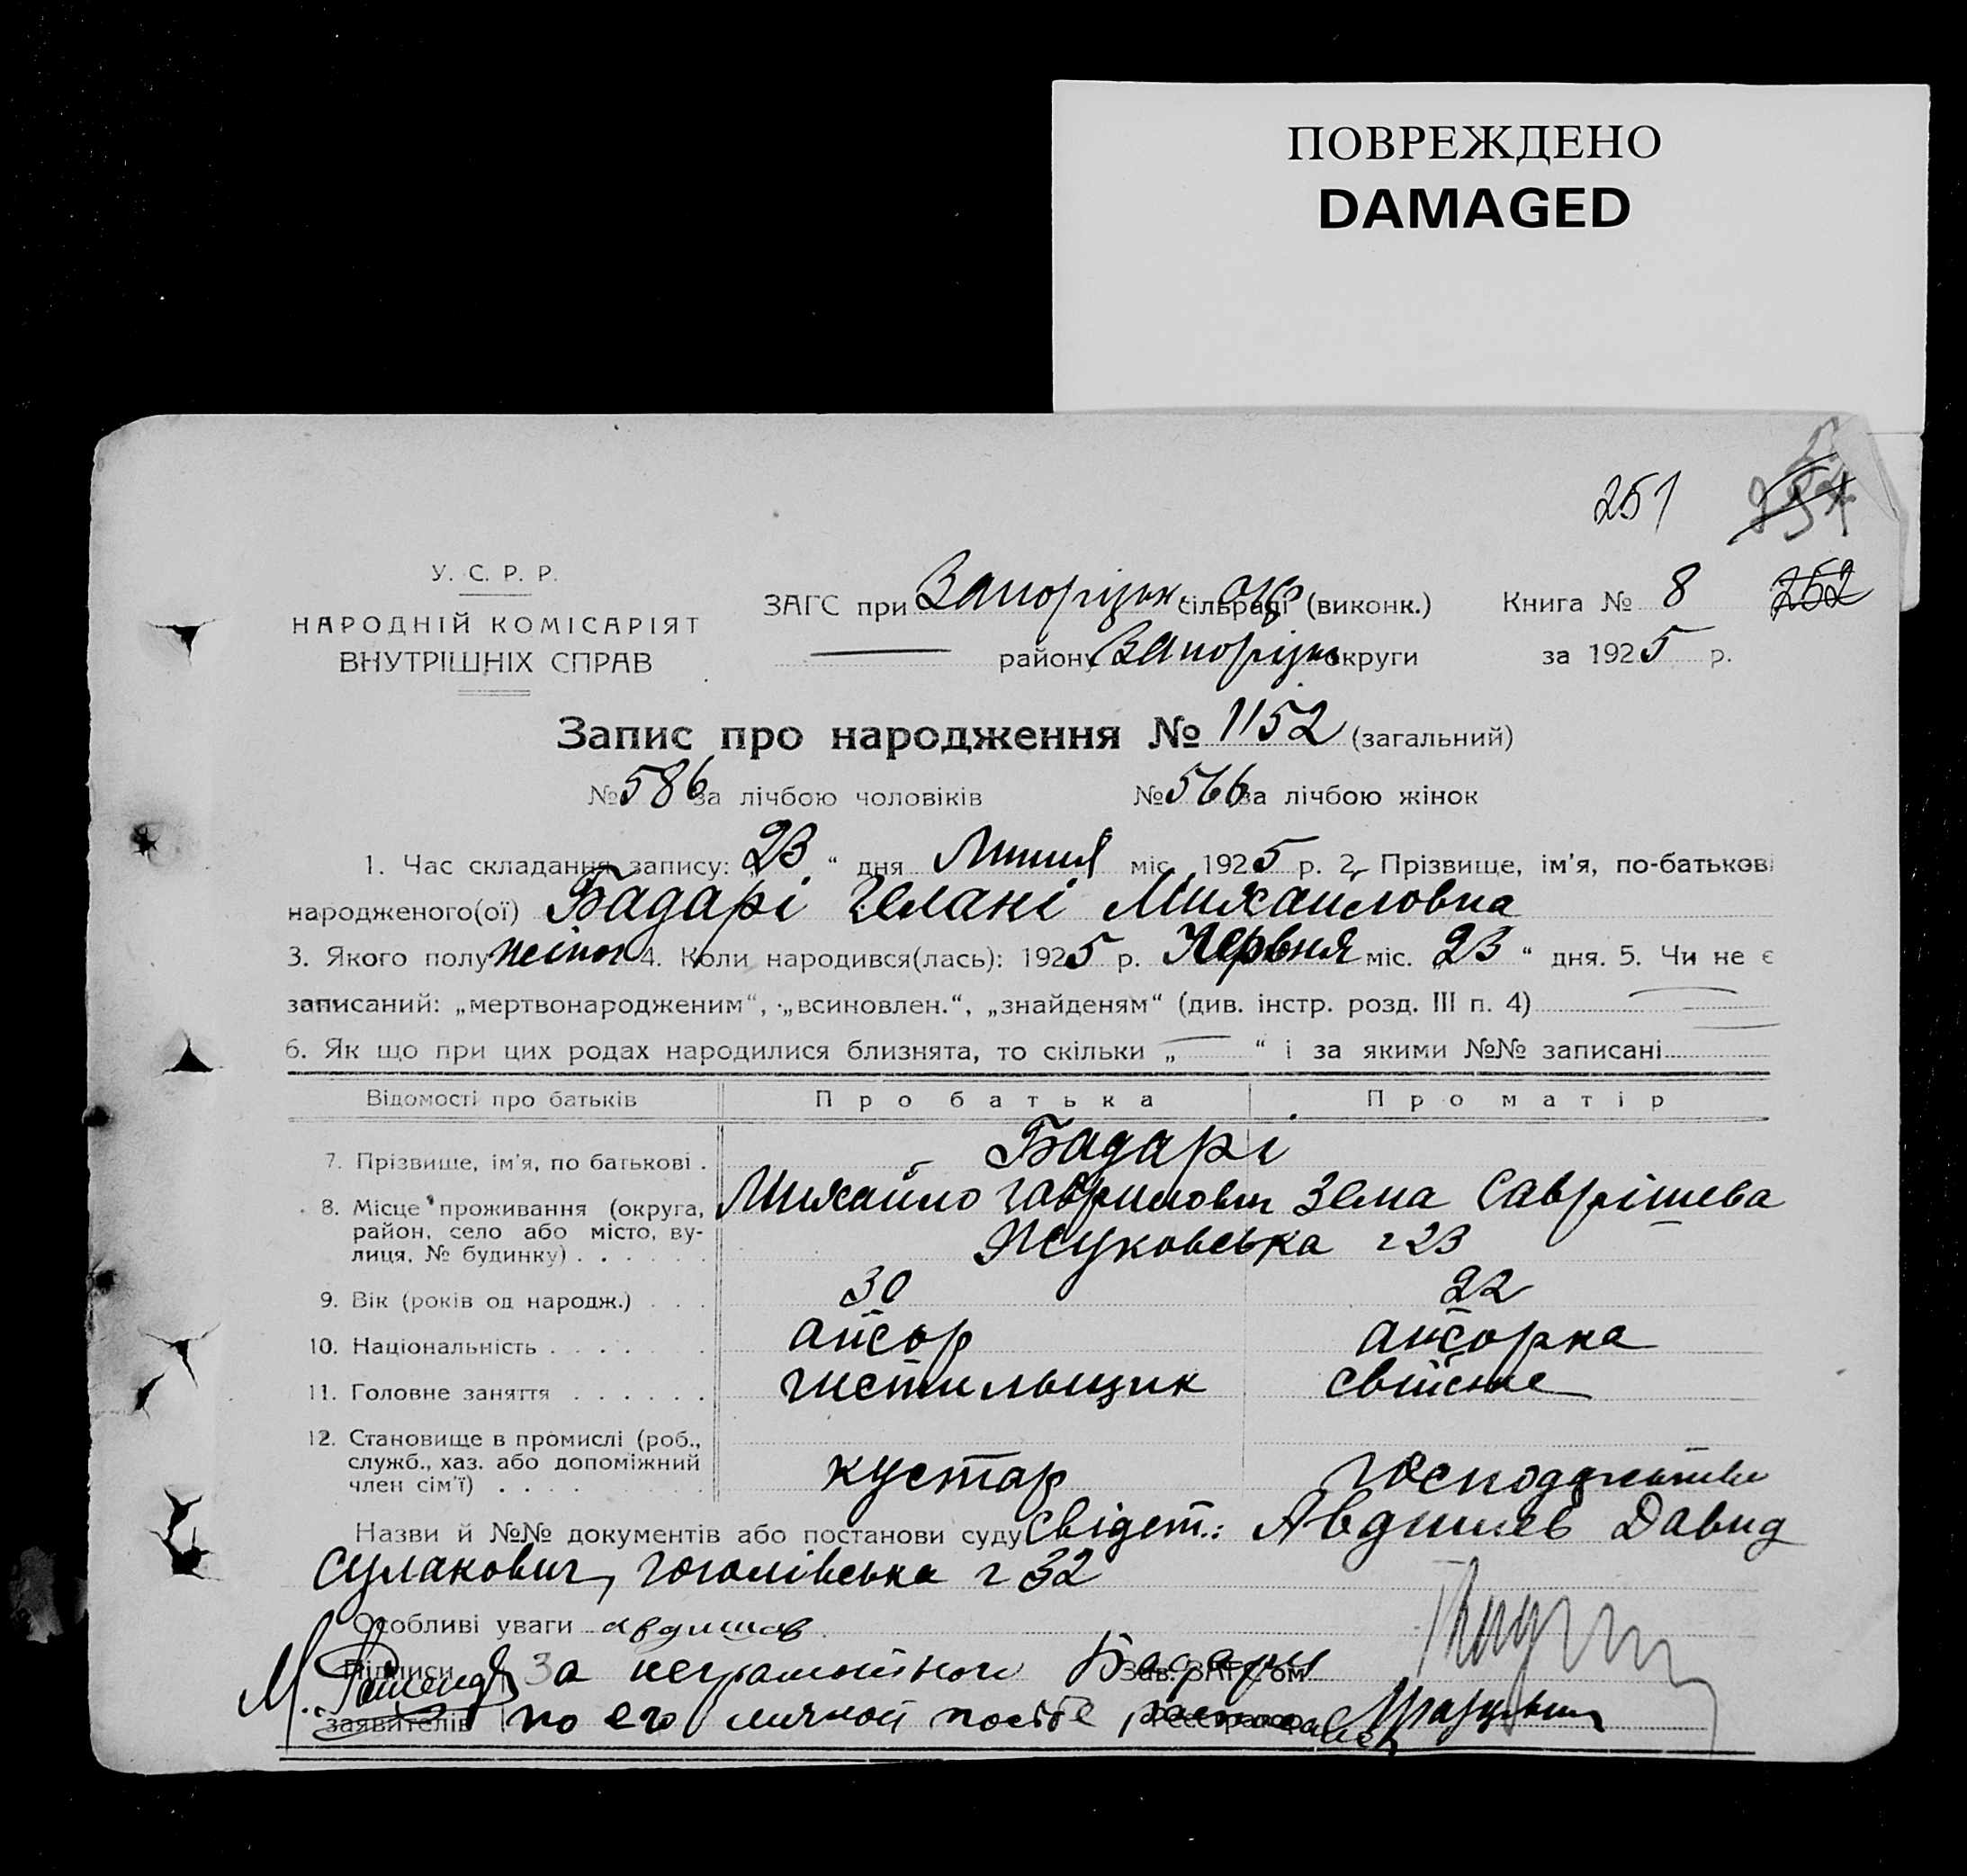 ПОВРЕЖДЕНО
DAMAGED
251
252
У. С. Р. Р.
НАРОДНІЙ КОМІСАРІЯТ
ВНУТРІШНІХ СПРАВ
ЗАГС при Запорізьк. окр сільраді (виконк.)
району Запорізьк округи
Книга № 8
за 1925 р.
Запис про народження № 1152 (загальний)
№ 586 за лічбою чоловіків № 566 за лічбою жінок
1. Час складання запису: „23“ дня Липня міс. 1925 р. 2. Прізвище, ім'я, по-батькові
народженого(ої) Бадарі Гелані Михайловна
3. Якого полу жіноч 4. Коли народився(лась): 1925 р. Червня міс. „23“ дня. 5. Чи не є
записаний: „мертвонародженим“, „всиновлен.“, „знайденям“ (див. інстр. розд. III п. 4)
6. Як що при цих родах народилися близнята, то скільки „ “ і за якими №№ записані
Відомості про батьків Про батька Про матір
7. Прізвище, ім'я, по батькові . Бадарі
8. Місце проживання (округа, район, село або місто, вулиця, № будинку) . . . . . . Михайло Гаврилович Зема Саврішева
Жуковська 23
9. Вік (років од народж.) . . . 30 22
10. Національність . . . . . . . айсор айсорка
11. Головне заняття . . . . . . чистильщик свійське
12. Становище в промислі (роб., служб., хаз. або допоміжний член сім'ї) . . . . кустар
Назви й №№ документів або постанови суду Свідет.: Авдишев Давид
Сулакович, Гоголівська 32
Особливі уваги авдишов
Підписи За неграмотного Бадари Зав. ЗАГС'ом
заявителів по его личной посьбе